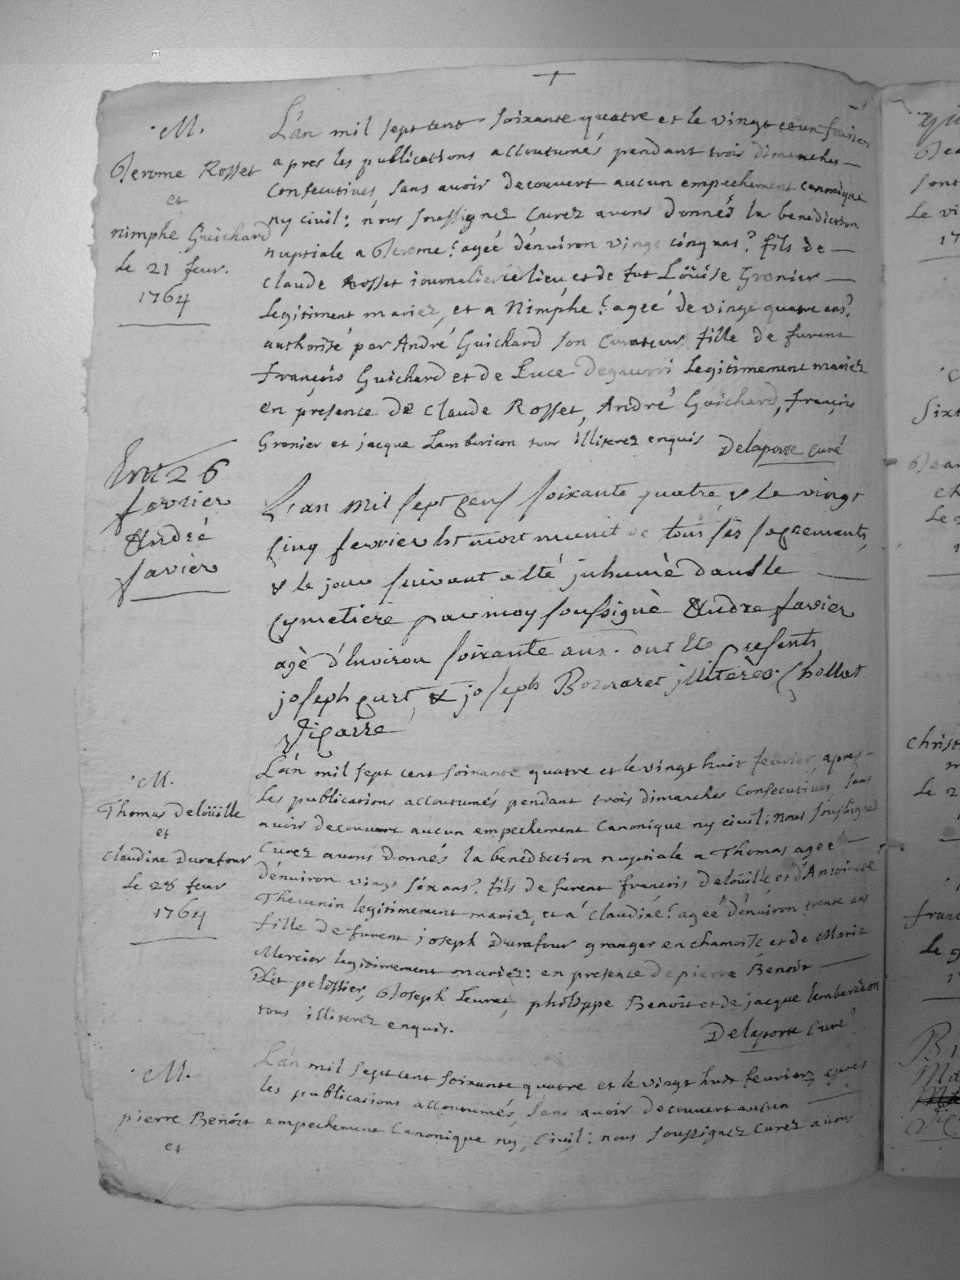 M.
Jerome Rosset
et
nimphe Guichard
le 21 feur.
1764
L'an mil sept cent soixante quatre et le vingt et un feurier
apres les publications accoutumés pendant trois dimanches
consecutives sans avoir decouvert aucun empechement canonique
ny civil: nous soussignez curez avons donnés la benediction
nuptiale a Jerome agée d'environ vingt cinq ans fils de
claude Rosset journalier et de Loüise Gronier
legitiment mariez, et a Nimphe agée de vingt quatre ans
authorisé par André Guichard son curateur fille de furent
françois Guichard et de Luce legitimement mariez
en presence de claude Rosset, André Guichard, françois
Gronier et jacque Lambericon tous illiterez enquis Delaporte curé
Ent 26
fevrier
André
favier
L'an mil sept cens soixante quatre & le vingt
cinq fevrier est mort munit de tous ses sacrements
& le jour suivant a été inhumè dans le
cymetiere par moy soussignè Andre favier
agè d'environ soixante ans. ont etè presents
joseph curt, & joseph illiterés. Chollat
Vicaire
M.
Thomas Deloüille
et
claudine Durafour
le 28 feur
1764
L'an mil sept cent soixante quatre et le vingt huit fevrier, apres
les publications accoutumés pendant trois dimanches consecutives, sans
avoir decouvert aucun empechement canonique ny civil; nous soussignez
curez avons donnés la benediction nuptiale a Thomas agee
d'environ vingt six ans, fils de furent françois Deloüille et d'Antoinette
Thevenin legitimement mariez, et a claudine agée d'environ trente ans
fille de furent joseph Durafour granger en chamoise et de Marie
Mercier legitimement mariez: en presence de pierre Benoit
pelossier, Joseph Leurat, philippe Benoit et de jacque lambericon
tous illiterez enquis.
Delaporte curé
M.
pierre Benoit
et
L'an mil sept cent soixante quatre et le vingt huit fevrier, apres
les publications accoutumés, sans avoir decouvert aucun
empechement canonique ny, civil: nous soussignez curez avons